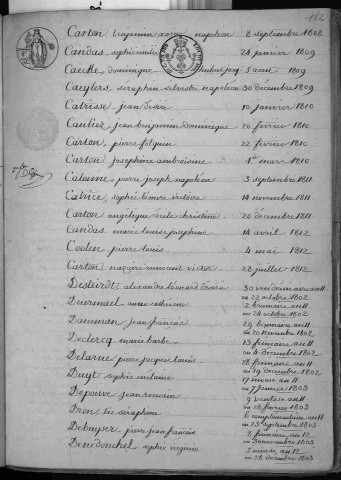 Carton benjamin xavier napoleon 8 septembre 1808
Candas sophie 24 janvier 1809
Caecke dominique hubert 5 aout 1809
Caeyters seraphin silvestre napoleon 30 décembre 1809
Catrisse jean desire 10 janvier 1810
Cauliez jean benjamin dominique 20 fevrier 1810
Carton pierre folquin 22 fevrier 1810
Carton josephine ambroisine 1er mars 1810
Calonne pierre joseph napoleon 3 septembre 1811
Catrice sophie victoire 14 novembre 1811
Carton angélique christine 20 décembre 1811
Candas marie louise josephine 14 avril 1812
Coolen pierre louis 4 mai 1812
Carton nazaire vincent victor 28 juillet 1812
Desteirdt alexandre léonard 30 vendemiaire an 11
ou 22 octobre 1802
Duvermel anne 2 brumaire an 11
ou 24 octobre 1802
Damman jean francois 29 brumaire an 11
ou 20 novembre 1802
Declercq marie barbe 13 frimaire an 11
ou 4 decembre 1802
Delarue pierre jacque louis 28 frimaire an 11
ou 19 decembre 1802
Duyt sophie melanie 17 nivose an 11
ou 7 janvier 1803
Depouve jean romain 9 ventose an 11
ou 28 fevrier 1803
Dron séraphine 6 complementaire an 11
ou 23 septembre 1803
Debuyser pierre jean francois 8 frimaire an 12
ou novembre 1803
Denedonchel sophie virginie 5 nivose an 12
ou 28 decembre 1803